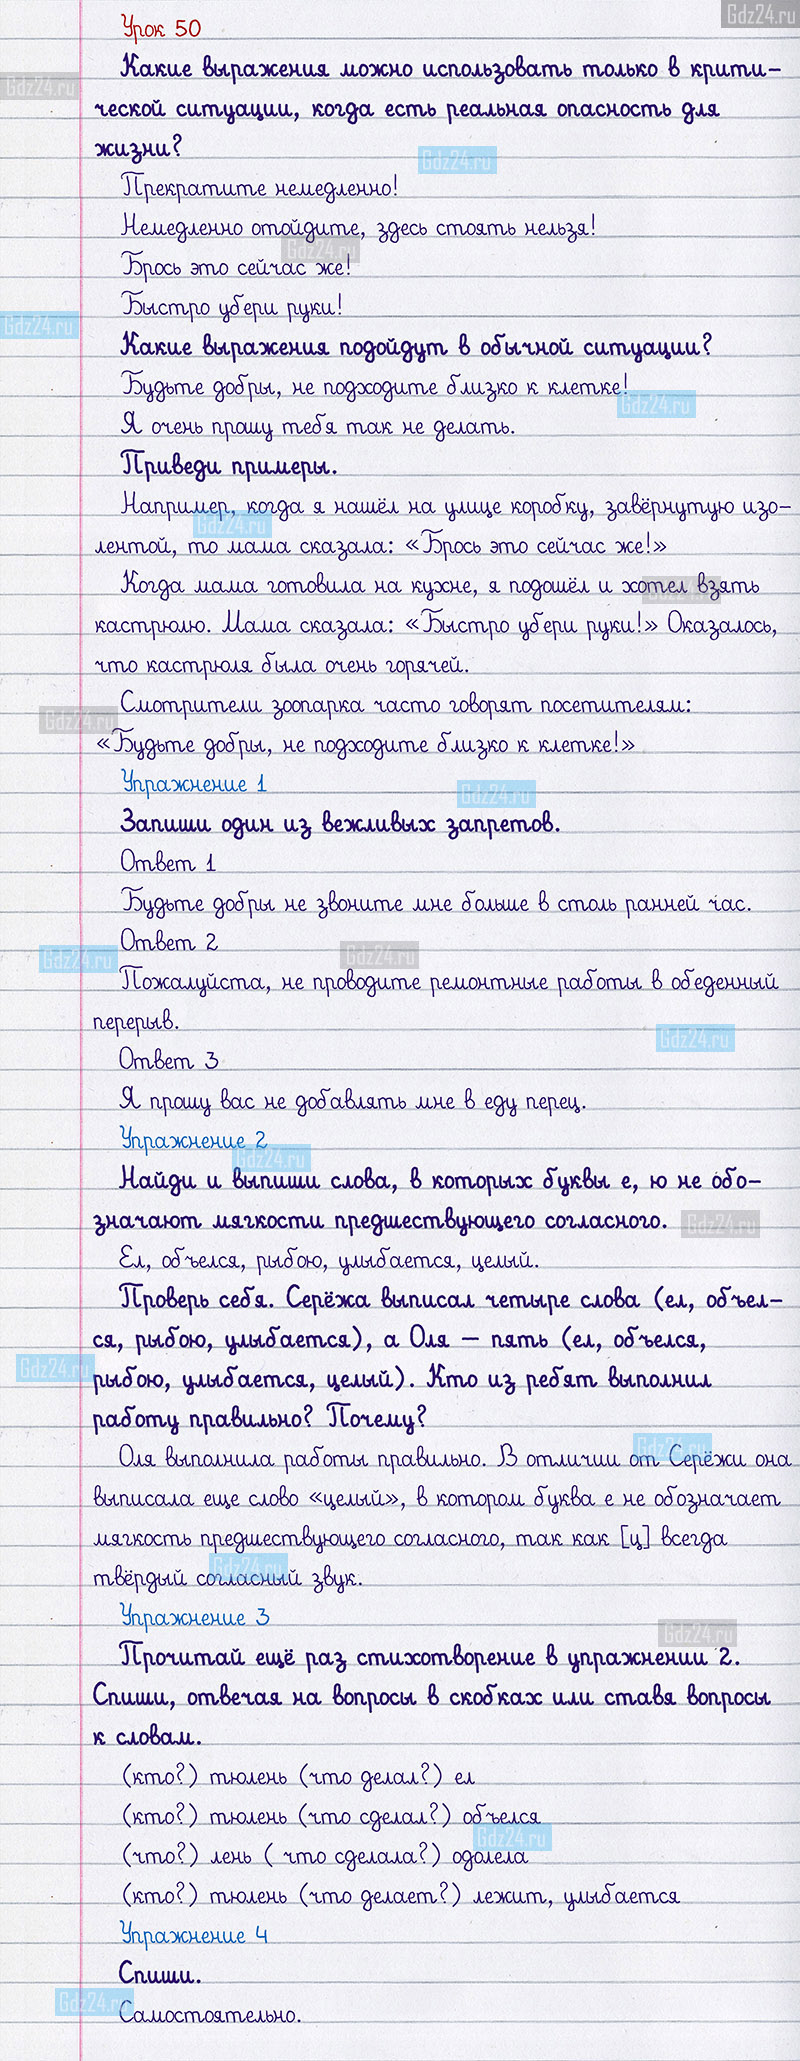 Gdz24.ru
Урок 50
Какие выражения можно использовать только в крити-
Gdz24.ru
ческой ситуации, когда есть реальная опасность для
жизни?
Gdz24.ru
Прекратите немедленно!
Немедленно отойдите, здесь стоять нельзя!
Gdz24.ru
Брось это сейчас же!
Быстро убери руки!
Gdz24.ru
Какие выражения подойдут в обычной ситуации?
Будьте добры, не подходите близко к клетке!
Gdz24.ru
Я очень прошу тебя так не делать.
Приведи примеры.
Например, когда я нашёл на улице коробку, завёрнутую изо-
Gdz24.ru
лентой, то мама сказала: «Брось это сейчас же!»
Когда мама готовила на кухне, я подошёл и хотел взять
Gdz24.ru
кастрюлю. Мама сказала: «Быстро убери руки!» Оказалось,
что кастрюля была очень горячей.
Смотрители зоопарка часто говорят посетителям:
Gdz24.ru
«Будьте добры, не подходите близко к клетке!»
Упражнение 1
Gdz24.ru
Запиши один из вежливых запретов.
Ответ 1
Будьте добры не звоните мне больше в столь ранней час.
Ответ 2
Gdz24.ru
Gdz24.ru
Пожалуйста, не проводите ремонтные работы в обеденный
перерыв.
Gdz24.ru
Ответ 3
Я прошу вас не добавлять мне в еду перец.
Упражнение 2
Gdz24.ru
Найди и выпиши слова, в которых буквы е, ю не обо-
значают мягкости предшествующего согласного.
Gdz24.ru
Ел, объелся, рыбою, улыбается, целый.
Проверь себя. Серёжа выписал четыре слова (ел, объел-
ся, рыбою, улыбается), а Оля — пять (ел, объелся,
Gdz24.ru
рыбою, улыбается, целый). Кто из ребят выполнил
работу правильно? Почему?
Gdz24.ru
Оля выполнила работы правильно. В отличии от Серёжи она
выписала еще слово «целый», в котором буква е не обозначает
мягкость предшествующего согласного, так как [ц] всегда
Gdz24.ru
твёрдый согласный звук.
Упражнение 3
Gdz24.ru
Прочитай ещё раз стихотворение в упражнении 2.
Спиши, отвечая на вопросы в скобках или ставя вопросы
к словам.
(кто?) тюлень (что делал?) ел
(кто?) тюлень (что сделал?) объелся
Gdz24.ru
(что?) лень ( что сделала?) одолела
(кто?) тюлень (что делает?) лежит, улыбается
Упражнение 4
Спиши.
Gdz24.ru
Самостоятельно.